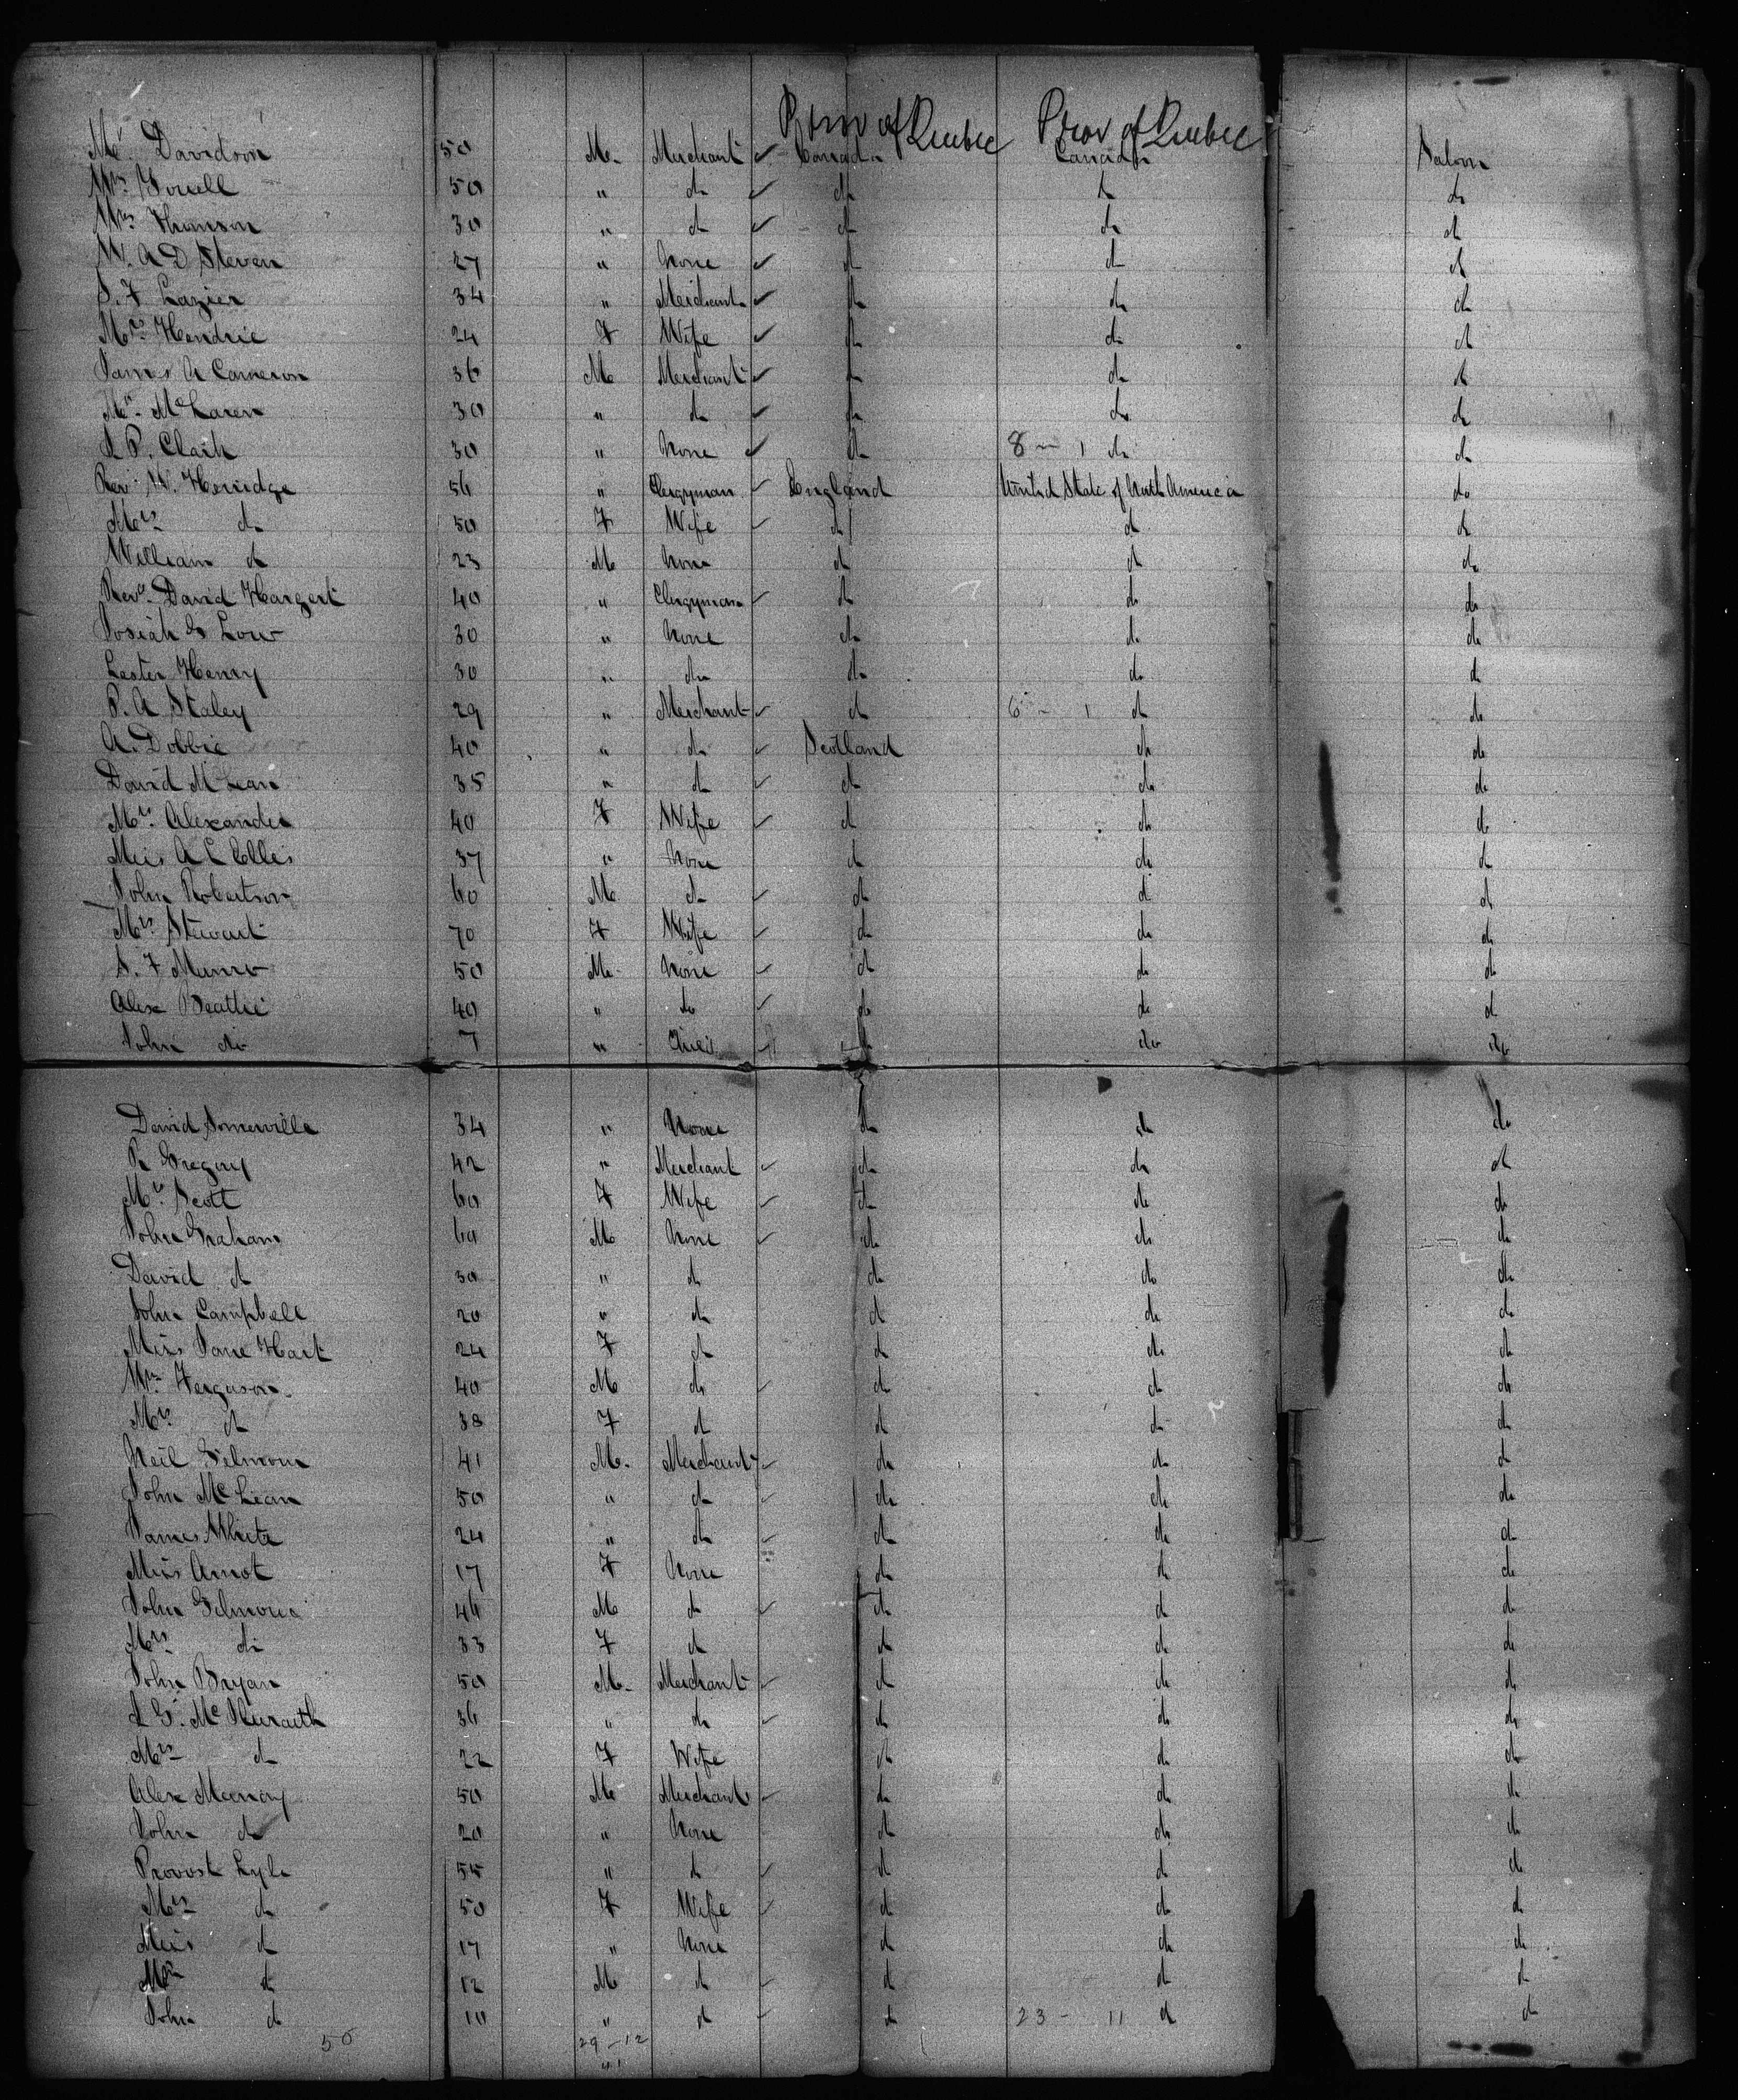 Prov of Quebec Prov of Quebec
Mr Davidson 50 M. Merchant Canada Canada Saloon
Mr. 50 " do do do do
Mr. Thomson 30 " do do do do
W. A D Steven 27 " None do do do
S. F Lazier 34 " Merchant do do do
Mrs. Hendrie 24 F Wife do do do
James A Cameron 36 M Merchant do do do
Mr. McLaren 30 " do do do do
P. Clark 30 " None do 8 - 1 do do
Rev. W. Herridge 54 " Clergyman England United State of North America do
Mrs do 50 F Wife do do do
William do 23 M None do do do
Revd. David 40 " Clergyman do do do
Josiah G Low 30 " None do do do
Lester Henry 30 " do do do do
P. A Staley 29 " Merchant do 6 - 1 do do
A. Dobbie 40 " do Scotland do do
David McLean 35 " do do do do
Mrs. Alexander 40 F Wife do do do
Miss A C Ellis 37 " None do do do
John Robertson 60 M do do do do
Mrs. Stewart 70 F Wife do do do
S. F Munro 50 M. None do do do
Alex Beattie 40 " do do do do
John do 7 " do do do
David Somerville 34 " None do do do
R Gregory 42 " Merchant do do do
Mrs. Scott 60 F Wife do do do
John Graham 60 M None do do do
David do 30 " do do do do
John Campbell 20 " do do do do
Miss Jane Hart 24 F do do do do
Mr. Ferguson 40 M do do do do
Mrs do 38 F do do do do
Neil Gilmour 41 M. Merchant do do do
John McLean 50 " do do do do
James White 24 " do do do do
Miss Arnot 17 F None do do do
John Gilmour 44 M do do do do
Mrs do 33 F do do do do
John Bryan 50 M. Merchant do do do
36 " do do do do
Mrs do 22 F Wife do do do
Alex Murray 50 M Merchant do do do
John do 20 " None do do do
Provost Lyle 55 " do do do do
Mrs do 50 F Wife do do do
Miss do 17 " None do do do
Mr do 12 M do do do do
John do 10 " do do 23 - 11 do do
50 29 - 12
41